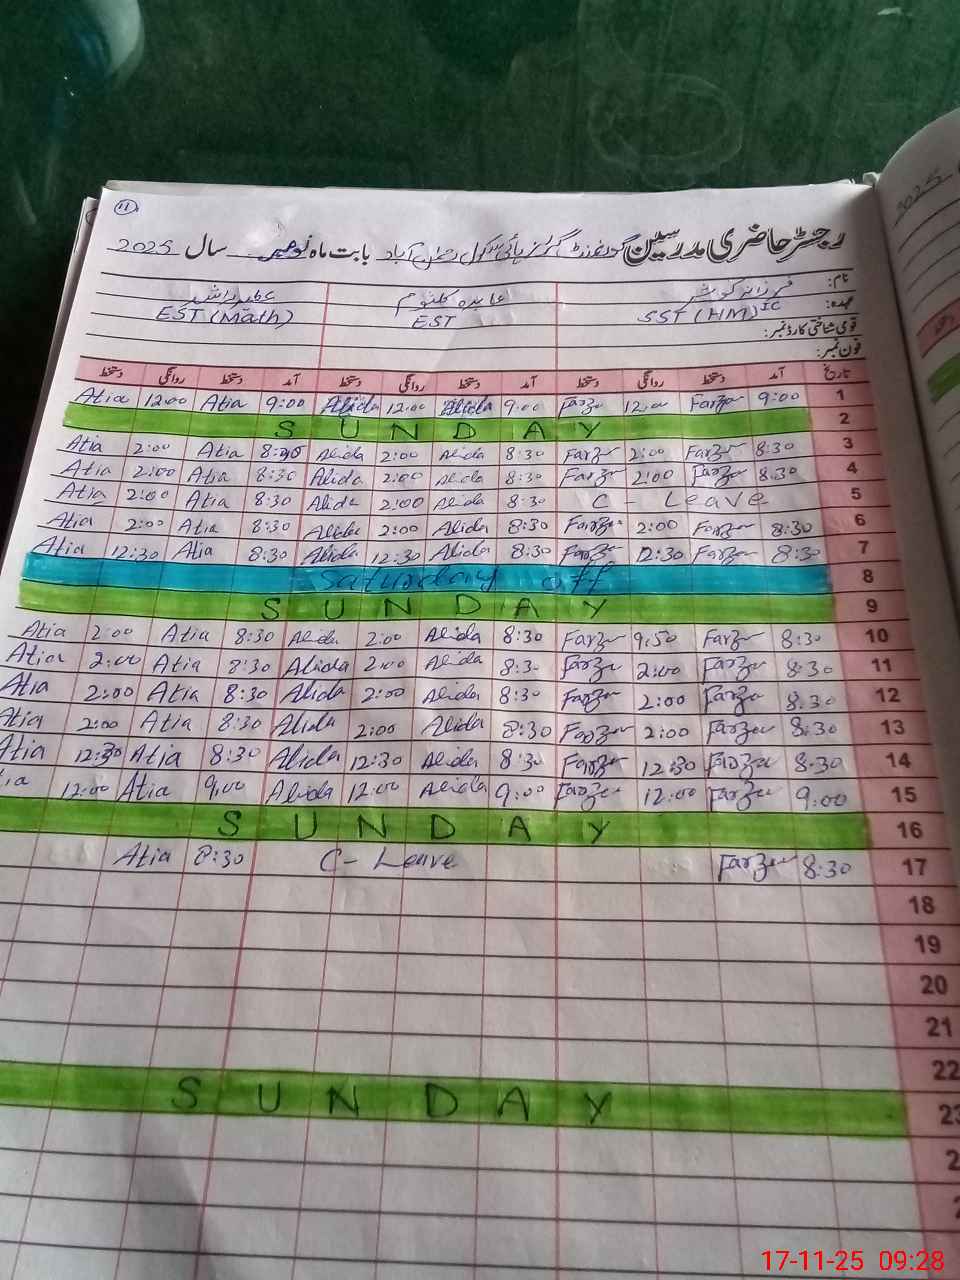 11
رجسٹر حاضری مدرسین گورنمنٹ گرلز ہائی سکول آباد بابت ماہ نومبر سال 2025
2025
نام: فرزانہ کوثر عابدہ کلثوم عطیہ راشد
عہدہ: SST (HM) IC EST EST (Math)
قومی شناختی کارڈ نمبر:
فون نمبر:
تاریخ آمد دستخط روانگی دستخط آمد دستخط روانگی دستخط آمد دستخط روانگی دستخط
Atia 12:00 Atia 9:00 Alida 12:00 Alida 9:00 Farzu 12:00 Farzu 9:00 1
SUNDAY 2
Atia 2:00 Atia 8:30 Alida 2:00 Alida 8:30 Farzu 2:00 Farzu 8:30 3
Atia 2:00 Atia 8:30 Alida 2:00 Alida 8:30 Farzu 2:00 Farzu 8:30 4
Atia 2:00 Atia 8:30 Alida 2:00 Alida 8:30 C - Leave 5
Atia 2:00 Atia 8:30 Alida 2:00 Alida 8:30 Farzu 2:00 Farzu 8:30 6
Atia 12:30 Atia 8:30 Alida 12:30 Alida 8:30 Farzu 12:30 Farzu 8:30 7
Saturday off 8
SUNDAY 9
Atia 2:00 Atia 8:30 Alida 2:00 Alida 8:30 Farzu 9:50 Farzu 8:30 10
Atia 2:00 Atia 8:30 Alida 2:00 Alida 8:30 Farzu 2:00 Farzu 8:30 11
Atia 2:00 Atia 8:30 Alida 2:00 Alida 8:30 Farzu 2:00 Farzu 8:30 12
Atia 2:00 Atia 8:30 Alida 2:00 Alida 8:30 Farzu 2:00 Farzu 8:30 13
Atia 12:30 Atia 8:30 Alida 12:30 Alida 8:30 Farzu 12:30 Farzu 8:30 14
tia 12:00 Atia 9:00 Alida 12:00 Alida 9:00 Farzu 12:00 Farzu 9:00 15
SUNDAY 16
Atia 8:30 C - Leave Farzu 8:30 17
18
19
20
21
22
SUNDAY 23
2
2
17-11-25 09:28